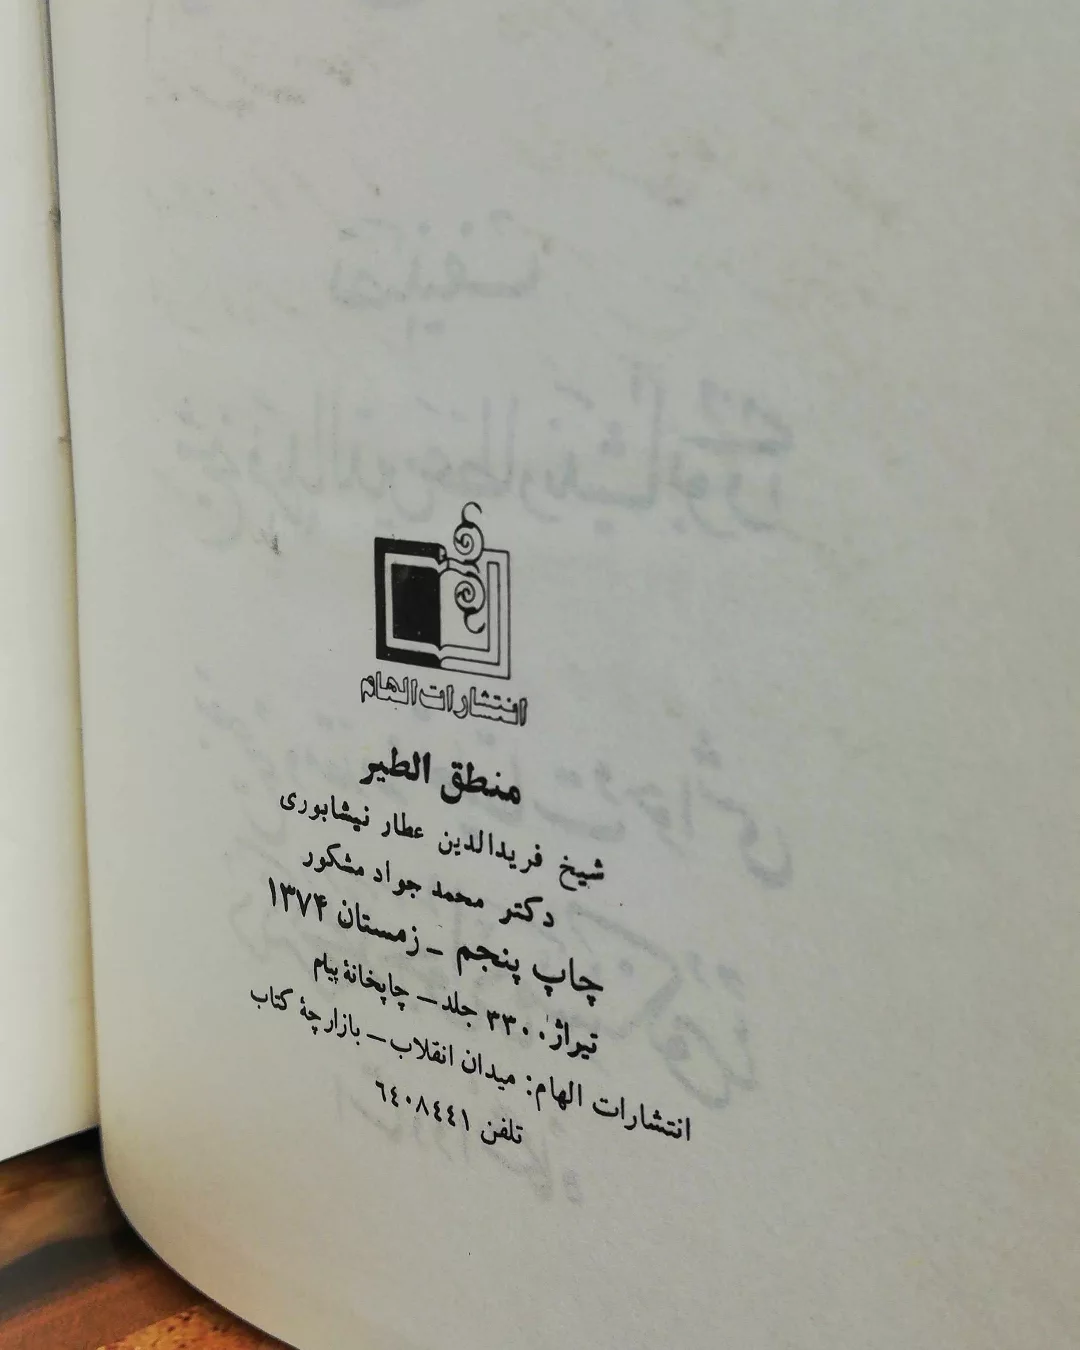 انتشارات الهام
منطق الطیر
شیخ فریدالدین عطار نیشابوری
دکتر محمد جواد مشکور
چاپ پنجم ـ زمستان ۱۳۷۴
تیراژ ۳۳۰۰ جلد ـ چاپخانهٔ پیام
انتشارات الهام: میدان انقلاب ـ بازارچهٔ کتاب
تلفن ٦٤٠٨٤٤١